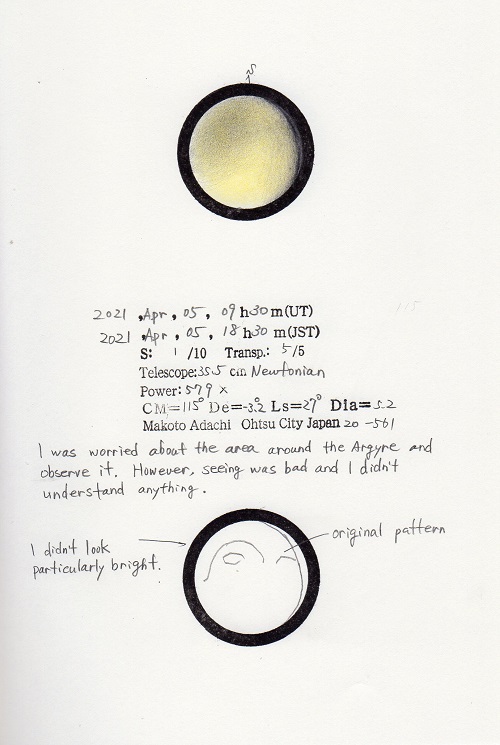 S
2021 ,Apr , 05 , 09 h30 m(UT)
2021 ,Apr , 05 , 18 h30 m(JST)
S: 1 /10 Transp.: 5/5
Telescope:35.5 cm Newtonian
Power: 579 x
CM=115° De=-3.2 Ls=27° Dia=5.2
Makoto Adachi Ohtsu City Japan 20 -561
I was worried about the area around the Argyre and
observe it. However, seeing was bad and I didn't
understand anything.
original pattern
I didn't look
particularly bright.